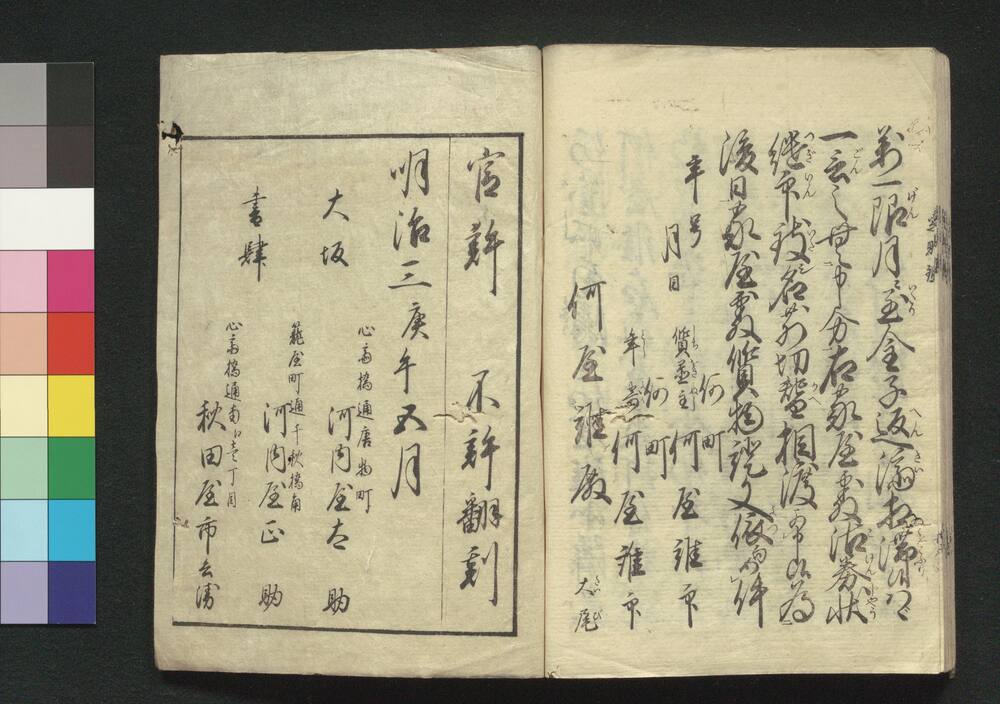 萬一限月至金子返濟相滞候ハゝ
一言之申分右家屋敷沽券状
継印致名前切替相渡可申候為
後日家屋敷質物證文依而如件
年号
月日
何町
質置主 何屋誰印
何町
年寄 何屋誰印
何屋誰殿
大尾
官許 不許翻刻
明治三庚午五月
大坂
書肆
心斎橋通唐物町
河内屋太助
河内屋正助
心斎橋通南江壱丁目
秋田屋市兵衛